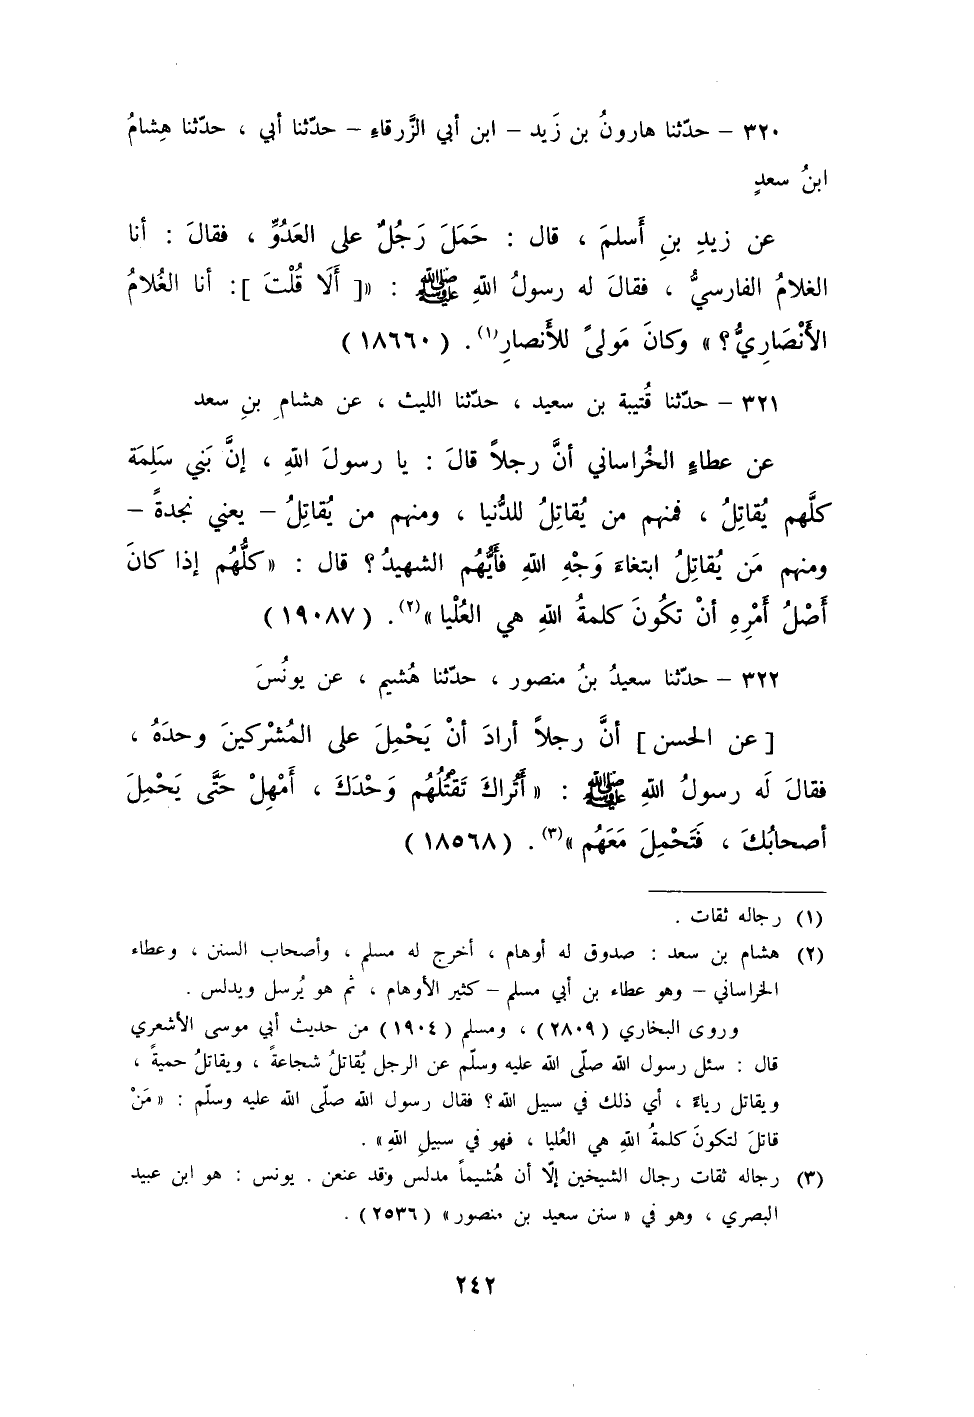 ٣٢٠ – حدّثنا هارونُ بن زَيد – ابن أبي الزَّرقاءِ – حدّثنا أبي ، حدّثنا هِشامُ
ابنُ سعدٍ
عن زيدِ بنِ أَسلمَ ، قال : حَمَلَ رَجُلٌ على العَدُوِّ ، فقالَ : أنا
الغلامُ الفارسيُّ ، فقالَ له رسولُ اللهِ ﷺ : «[ أَلَا قُلْتَ ]: أنا الغُلامُ
الأَنْصَارِيُّ؟ » وكانَ مَولىً للأَنصارِ(١) . ( ١٨٦٦٠ )
٣٢١ – حدّثنا قُتيبة بن سعيد ، حدّثنا الليث ، عن هشامِ بنِ سعد
عن عطاءٍ الخُراساني أنَّ رجلاً قالَ : يا رسولَ اللهِ ، إنَّ بَني سَلِمَة
كلَّهم يُقاتِلُ ، فمنهم من يُقاتِلُ للدُّنيا ، ومنهم من يُقاتِلُ – يعني نجدةً –
ومنهم مَن يُقاتِلُ ابتغاءَ وَجْهِ اللهِ فأَيُّهُم الشهيدُ؟ قال : «كلُّهُم إذا كانَ
أَصْلُ أَمْرِهِ أنْ تكُونَ كلمةُ اللهِ هي العُلْيا »(٢) . ( ١٩٠٨٧ )
٣٢٢ – حدّثنا سعيدُ بنُ منصور ، حدّثنا هُشيم ، عن يونُسَ
[ عن الحسن ] أنَّ رجلاً أرادَ أنْ يَحْمِلَ على المُشْركينَ وحدَهُ ،
فقالَ لَه رسولُ اللهِ ﷺ : « أَتُراكَ تَقْتُلُهُم وَحْدَكَ ، أَمْهِلْ حَتَّى يَحْمِلَ
أصحابُكَ ، فَتَحْمِلَ مَعَهُم »(٣) . ( ١٨٥٦٨ )
(١) رجاله ثقات .
(٢) هشام بن سعد : صدوق له أوهام ، أخرج له مسلم ، وأصحاب السنن ، وعطاء
الخراساني – وهو عطاء بن أبي مسلم – كثير الأوهام ، ثم هو يُرسل ويدلس .
وروى البخاري ( ٢٨٠٩ ) ، ومسلم ( ١٩٠٤ ) من حديث أبي موسى الأشعري
قال : سئل رسول الله صلّى الله عليه وسلّم عن الرجل يُقاتلُ شجاعةً ، ويقاتلُ حميةً ،
ويقاتل رياءً ، أي ذلك في سبيل الله؟ فقال رسول الله صلّى الله عليه وسلّم : «مَنْ
قاتلَ لتكونَ كلمةُ اللهِ هي العُليا ، فهو في سبيلِ اللهِ» .
(٣) رجاله ثقات رجال الشيخين إلّا أن هُشيماً مدلس وقد عنعن . يونس : هو ابن عبيد
البصري ، وهو في « سنن سعيد بن منصور» ( ٢٥٣٦ ) .
٢٤٢